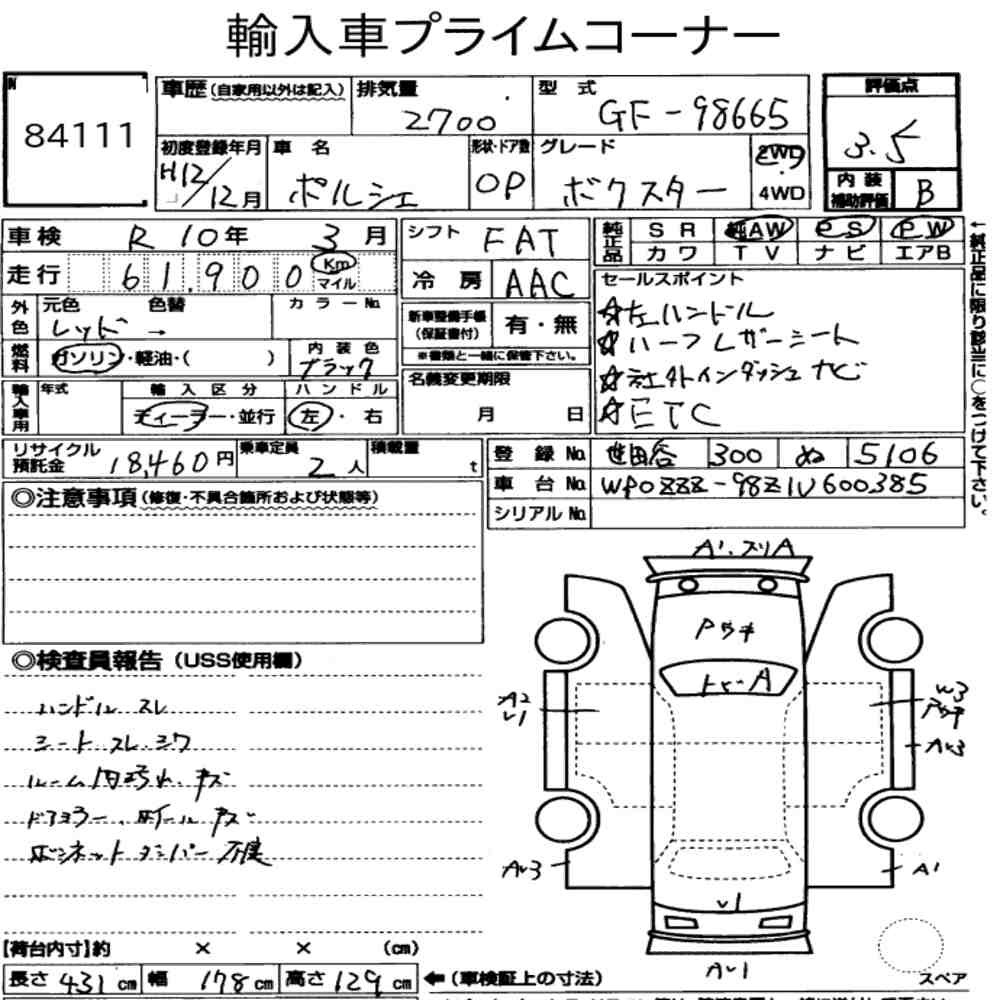 輸入車プライムコーナー
No
84111
車歴(自家用以外は記入) 排気量 2700 型式 GF-98665
初度登録年月 H12/12月 車名 ポルシェ 形状・ドア数 OP グレード ボクスター 2WD 4WD
評価点
3.5
内装補助評価 B
車検 R 10年 3月
走行 61,900 Km マイル
外色 元色 レッド → 色替 カラーNo.
燃料 ガソリン・軽油・( ) 内装色 ブラック
輸入車用 年式 輸入区分 ディーラー・並行 ハンドル 左・右
シフト FAT
冷房 AAC
新車整備手帳(保証書付) 有・無
※書類と一緒に保管下さい。
名義変更期限
月 日
純正品 SR 純AW PS PW
カワ TV ナビ エアB
セールスポイント
☆左ハンドル
☆ハーフレザーシート
☆社外インダッシュナビ
☆ETC
←純正品に限り該当に○をつけて下さい。
リサイクル預託金 18,460円 乗車定員 2人 積載量 t
登録No. 世田谷 300 ぬ 5106
車台No. WP0ZZZ-98Z1U600385
シリアルNo.
◎注意事項(修復・不具合箇所および状態等)
◎検査員報告(USS使用欄)
ハンドル スレ
シート スレ.シワ
ルーム内汚れ.キズ
ドアミラー.ホイール キズ
ボンネットダンパー不良
A1.スリA
Pウキ
トビーA
A2
U1
W3
Pウキ
AU3
AU3
A1
U1
AU1
スペア
【荷台内寸】約 × × (cm)
長さ 431 cm 幅 178 cm 高さ 129 cm ←(車検証上の寸法)